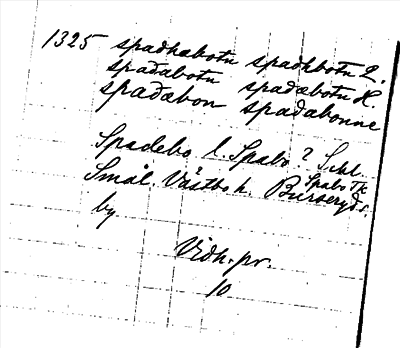 1325 spadhabotu spadhbotu 2.
spađabotu spađæbotu H.
spađæbon spađabonne
Spadebo l. Spabo ? Schl.
Spabo Tk
Smål. Västbo h. Burseryds.
by
Vidh. pr.
10